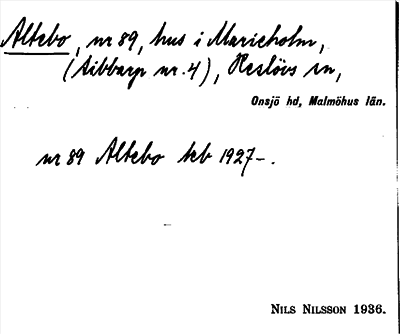 Altebo, nr 89, hus i Marieholm,
(Aibbarp nr. 4), Reslövs sn,
Onsjö hd, Malmöhus län.
nr 89 Altebo teb 1927–.
NILS NILSSON 1936.